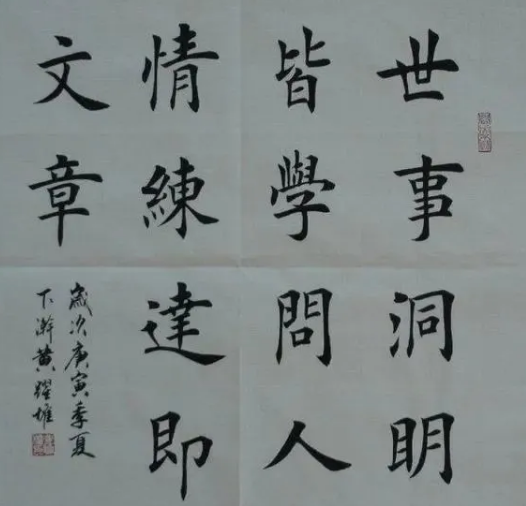 世事洞明
皆學問人
情練達即
文章
歲次庚寅季夏
下澣黃躍雄